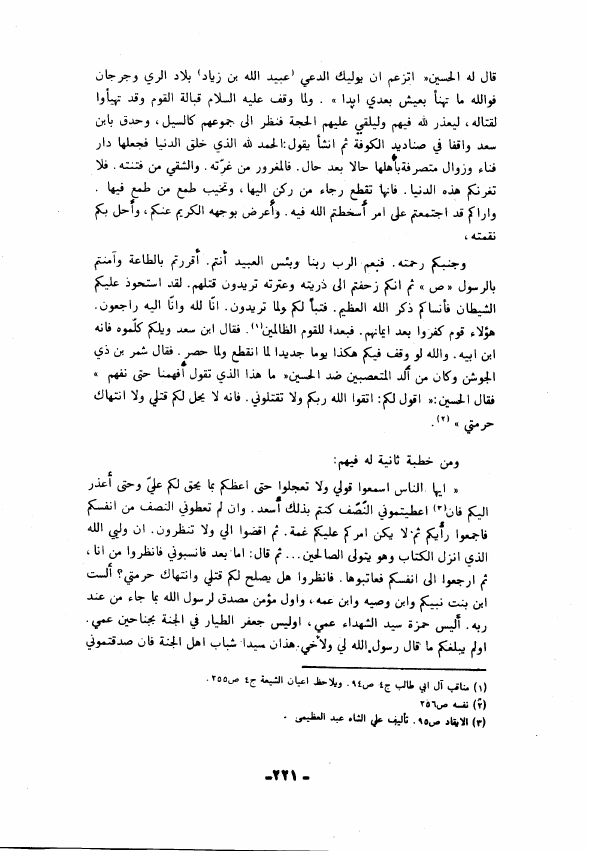 قال له الحسين« اتزعم ان يوليك الدعي (عبيد الله بن زياد) بلاد الري وجرجان
فوالله ما تهنأ بعيش بعدي ابدا » . ولما وقف عليه السلام قبالة القوم وقد تهيأوا
لقتاله ، ليعذر لله فيهم وليلقي عليهم الحجة فنظر الى جموعهم كالسيل ، وحدق بابن
سعد واقفا في صناديد الكوفة ثم انشأ يقول:الحمد لله الذي خلق الدنيا فجعلها دار
فناء وزوال متصرفة بأهلها حالا بعد حال . فالمغرور من غرّته . والشقي من فتنته . فلا
تغرنكم هذه الدنيا . فانها تقطع رجاء من ركن اليها ، وتخيب طمع من طمع فيها .
واراكم قد اجتمعتم على امر أسخطتم الله فيه . وأعرض بوجهه الكريم عنكم ، وأحل بكم
نقمته ،
وجنبكم رحمته . فنعم الرب ربنا وبئس العبيد أنتم . أقررتم بالطاعة وآمنتم
بالرسول « ص » ثم انكم زحفتم الى ذريته وعترته تريدون قتلهم . لقد استحوذ عليكم
الشيطان فأنساكم ذكر الله العظيم . فتباً لكم ولما تريدون . انّا لله وانّا اليه راجعون .
هؤلاء قوم كفروا بعد ايمانهم . فبعدا للقوم الظالمين(١). فقال ابن سعد ويلكم كلّموه فانه
ابن ابيه . والله لو وقف فيكم هكذا يوما جديدا لما انقطع ولما حصر . فقال شمر بن ذي
الجوشن وكان من ألد المتعصبين ضد الحسين« ما هذا الذي تقول أفهمنا حتى نفهم »
فقال الحسين:« اقول لكم: اتقوا الله ربكم ولا تقتلوني . فانه لا يحل لكم قتلي ولا انتهاك
حرمتي » (٢).
ومن خطبة ثانية له فيهم:
« ايها الناس اسمعوا قولي ولا تعجلوا حتى اعظكم بما يحق لكم عليّ وحتى أعذر
اليكم فان(٣) اعطيتموني النَّصَف كنتم بذلك أسعد . وان لم تعطوني النصف من انفسكم
فاجمعوا رأيكم ثم لا يكن امركم عليكم غمة . ثم اقضوا الي ولا تنظرون . ان وليي الله
الذي انزل الكتاب وهو يتولى الصالحين ... ثم قال: اما بعد فانسبوني فانظروا من انا ،
ثم ارجعوا الى انفسكم فعاتبوها . فانظروا هل يصلح لكم قتلي وانتهاك حرمتي؟ ألست
ابن بنت نبيكم وابن وصيه وابن عمه ، واول مؤمن مصدق لرسول الله بما جاء من عند
ربه . أليس حمزة سيد الشهداء عمي ، اوليس جعفر الطيار في الجنة بجناحين عمي .
اولم يبلغكم ما قال رسول الله لي ولأخي . هذان سيدا شباب اهل الجنة فان صدقتموني
(١) مناقب آل ابي طالب ج٤ ص٩٤ . ويلاحظ اعيان الشيعة ج٤ ص٢٥٥ .
(٢) نفسه ص٢٥٦
(٣) الايقاد ص٩٥ . تأليف علي الشاه عبد العظيمى .
- ٢٢١ -